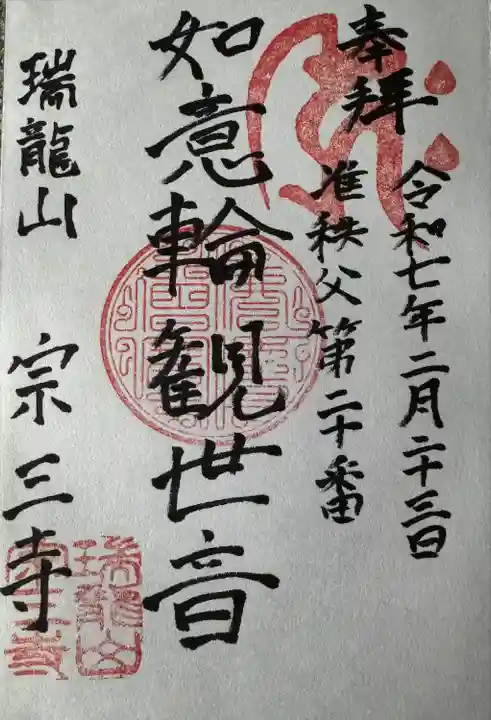 奉拝
令和七年二月二十三日
准秩父第二十番
如意輪観世音
瑞龍山 宗三寺
瑞龍山
宗三寺